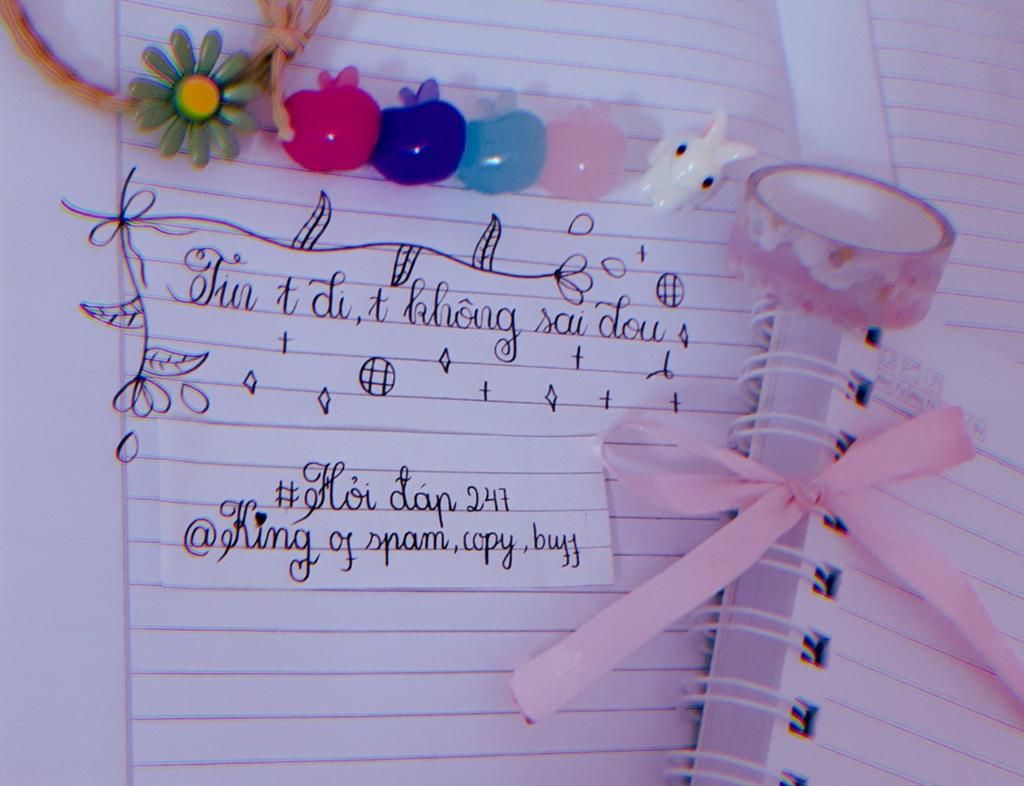 Tin t đi, t không sai đou
#Hỏi đáp 247
@King of spam, copy, buff